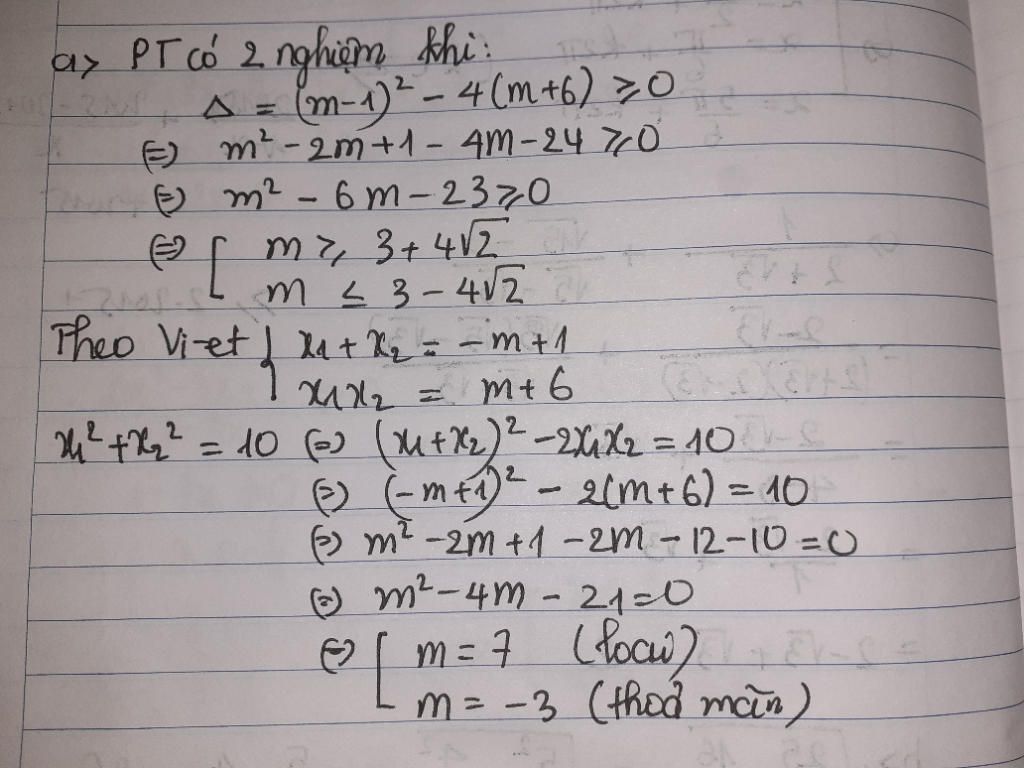 a> PT có 2 nghiệm khi:
Δ = (m-1)² - 4(m+6) ≥ 0
⇔ m² - 2m + 1 - 4m - 24 ≥ 0
⇔ m² - 6m - 23 ≥ 0
⇔ [ m ≥ 3 + 4√2
m ≤ 3 - 4√2
Theo Vi-et { x₁ + x₂ = -m+1
x₁x₂ = m+6
x₁² + x₂² = 10 ⇔ (x₁+x₂)² - 2x₁x₂ = 10
⇔ (-m+1)² - 2(m+6) = 10
⇔ m² - 2m + 1 - 2m - 12 - 10 = 0
⇔ m² - 4m - 21 = 0
⇔ [ m = 7 (loại)
m = -3 (thoả mãn)